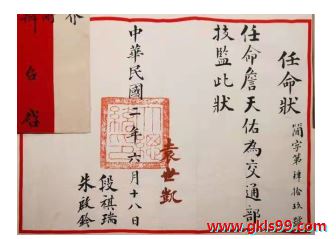 任命狀
簡字第肆拾玖號
任命詹天佑為交通部
技監此狀
袁世凱
中華民國二年六月十八日
段祺瑞
朱啟鈐
www.gkls99.com